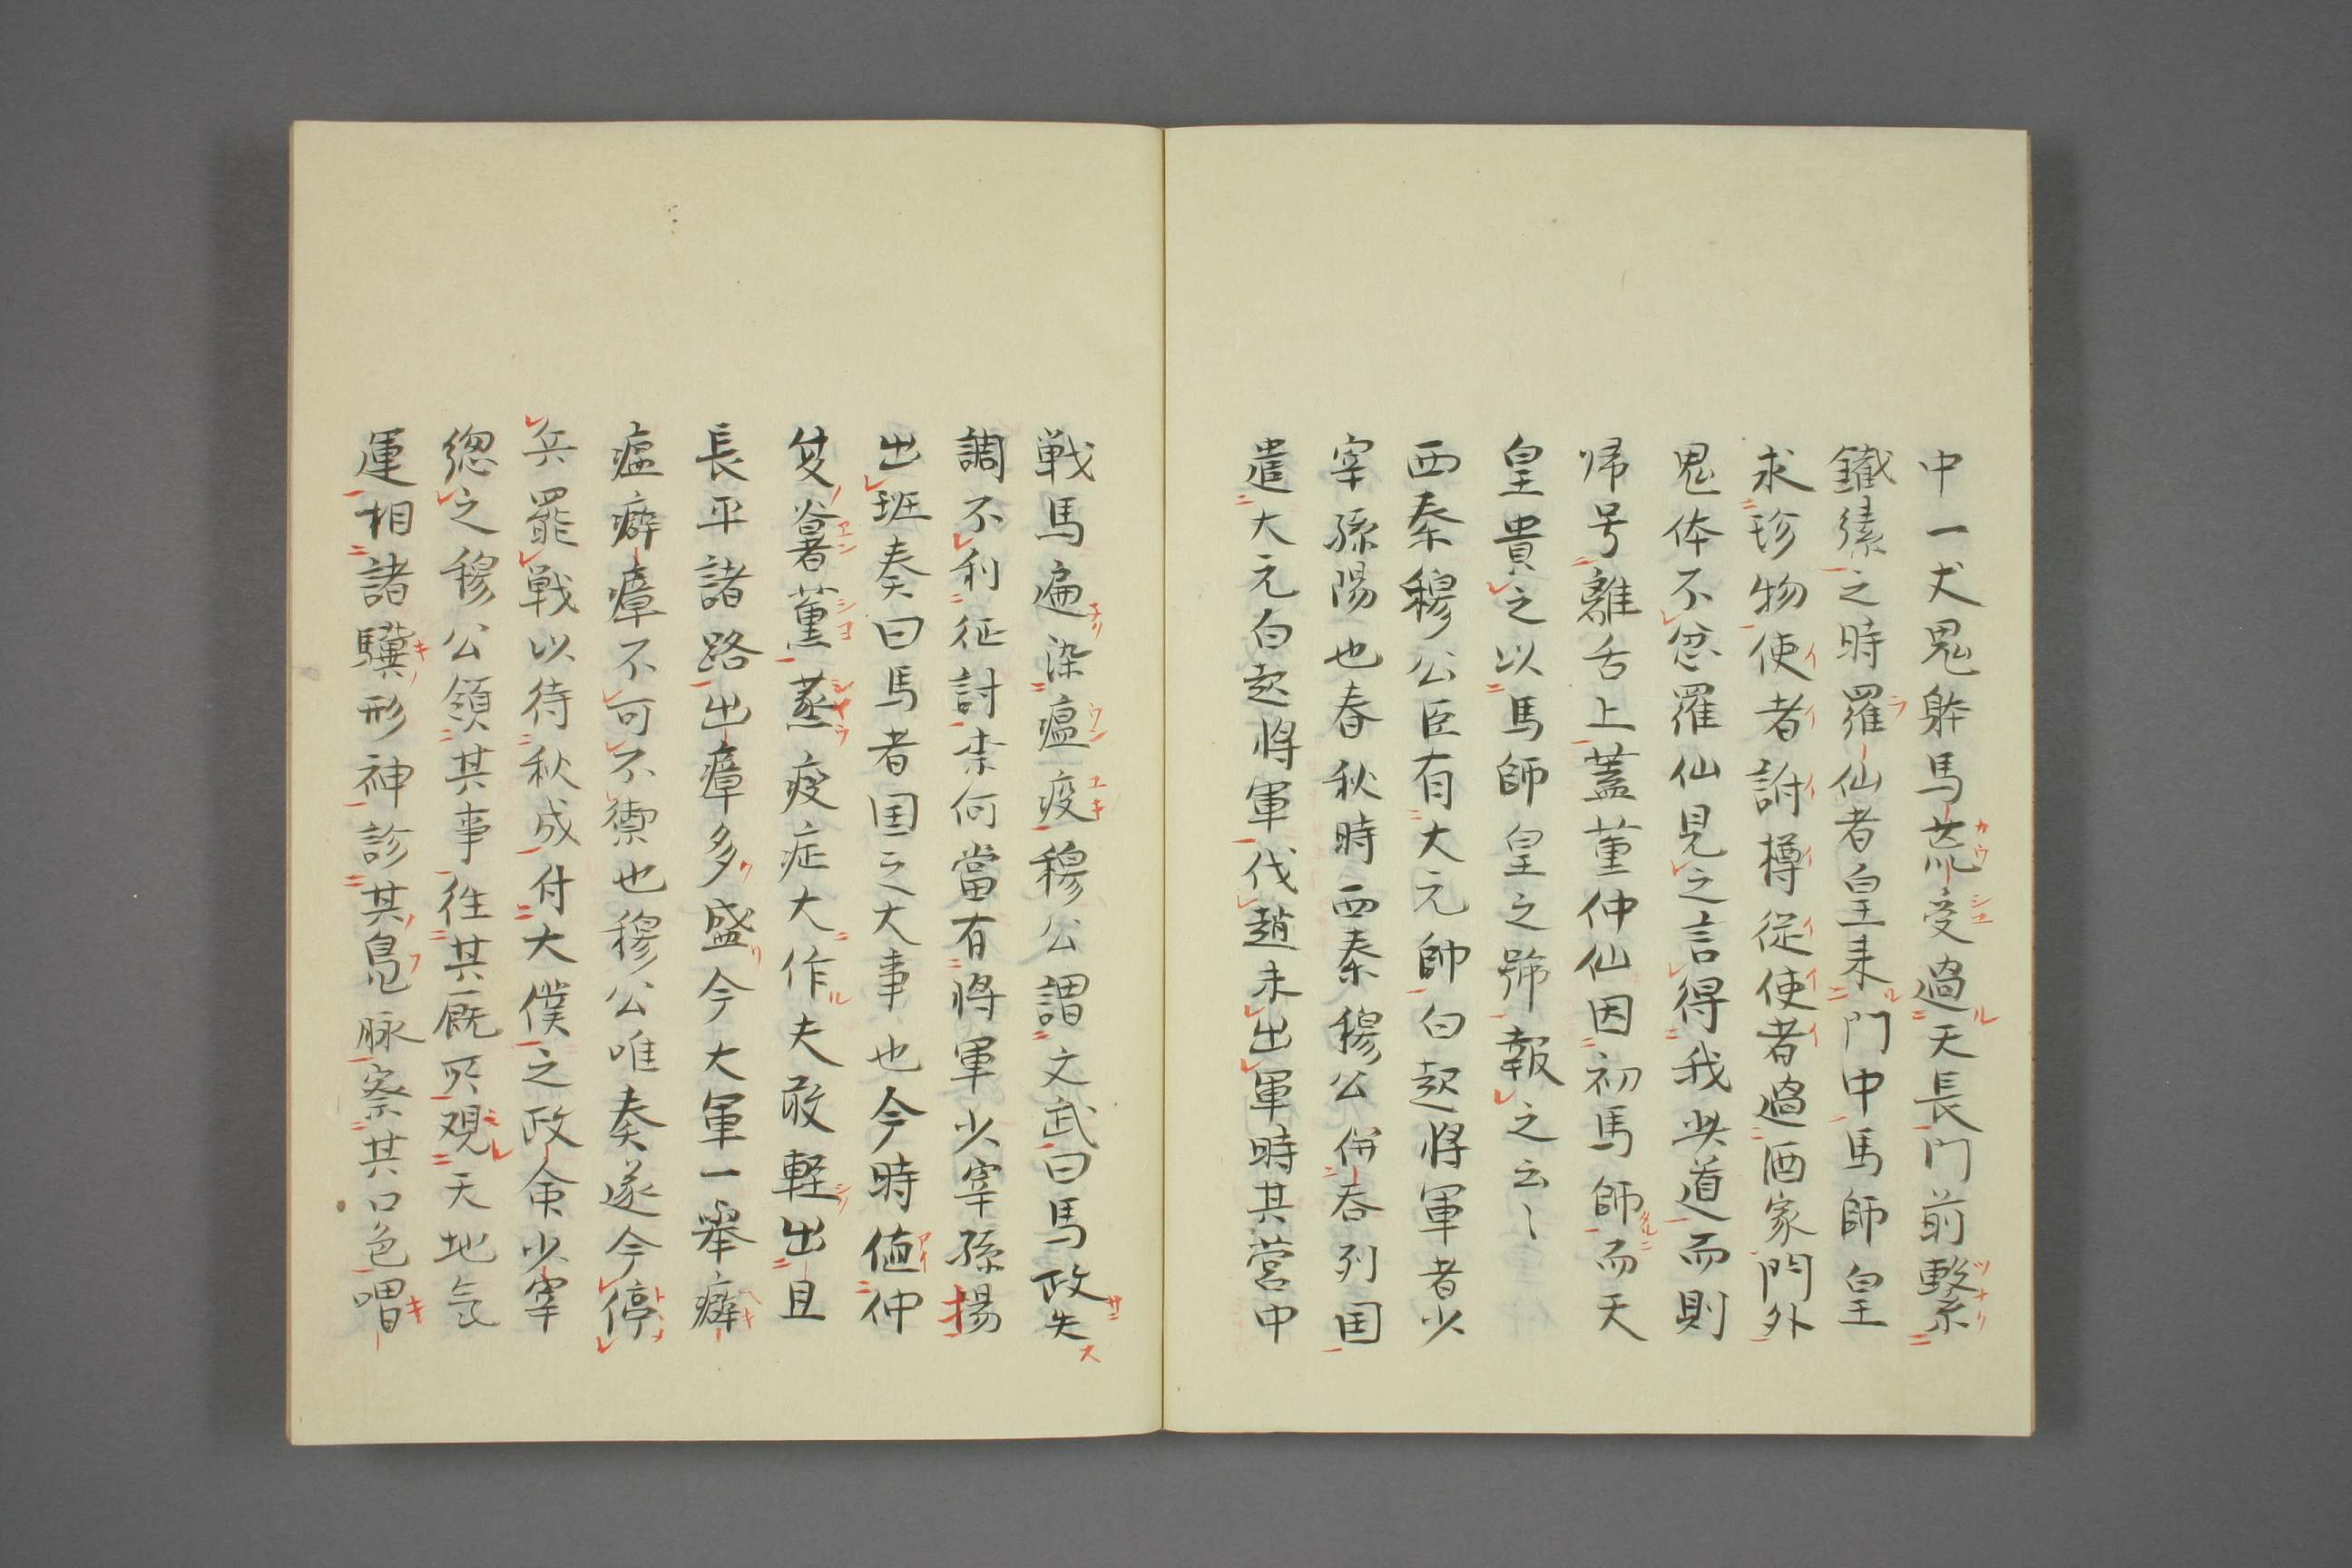 中一犬鬼躰馬荒受過天長門前繋
鐵索之時羅仙者皇来門中馬師皇
求珍物使者討樽従使者過酒家門外
鬼体不忩羅仙見之言得我此道而則
帰号離舌上蓋董仲仙因初馬師而天
皇貴之以馬師皇之號報之云〻
西秦穆公臣有大元帥白起将軍者少
宰孫陽也春秋時西秦穆公併吞列国
遣大元白起将軍伐趙未出軍時其営中
戦馬遍染瘟疫穆公謂文武曰馬政失
調不利征討柰何當有将軍少宰孫揚
出班奏曰馬者国之大事也今時値仲
炎暑薫蒸疫症大作夫敢軽出且
長平諸路出瘴多盛今大軍一挙癖
瘟癖瘴不可不禦也穆公唯奏遂今停
兵罷戦以待秋成付大僕之政命少宰
總之穆公領其事徃其厩所観天地気
運相諸驥形神診其鳧脉察其口色喟